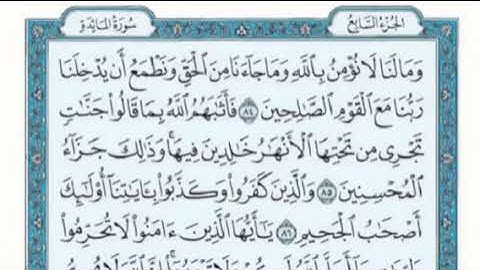 الجزء السابع
سورة المائدة
وَمَا لَنَا لَا نُؤْمِنُ بِٱللَّهِ وَمَا جَآءَنَا مِنَ ٱلْحَقِّ وَنَطْمَعُ أَن يُدْخِلَنَا
رَبُّنَا مَعَ ٱلْقَوْمِ ٱلصَّٰلِحِينَ ٨٤ فَأَثَٰبَهُمُ ٱللَّهُ بِمَا قَالُوا۟ جَنَّٰتٍ
تَجْرِى مِن تَحْتِهَا ٱلْأَنْهَٰرُ خَٰلِدِينَ فِيهَا ۚ وَذَٰلِكَ جَزَآءُ
ٱلْمُحْسِنِينَ ٨٥ وَٱلَّذِينَ كَفَرُوا۟ وَكَذَّبُوا۟ بِـَٔايَٰتِنَآ أُو۟لَٰٓئِكَ
أَصْحَٰبُ ٱلْجَحِيمِ ٨٦ يَٰٓأَيُّهَا ٱلَّذِينَ ءَامَنُوا۟ لَا تُحَرِّمُوا۟